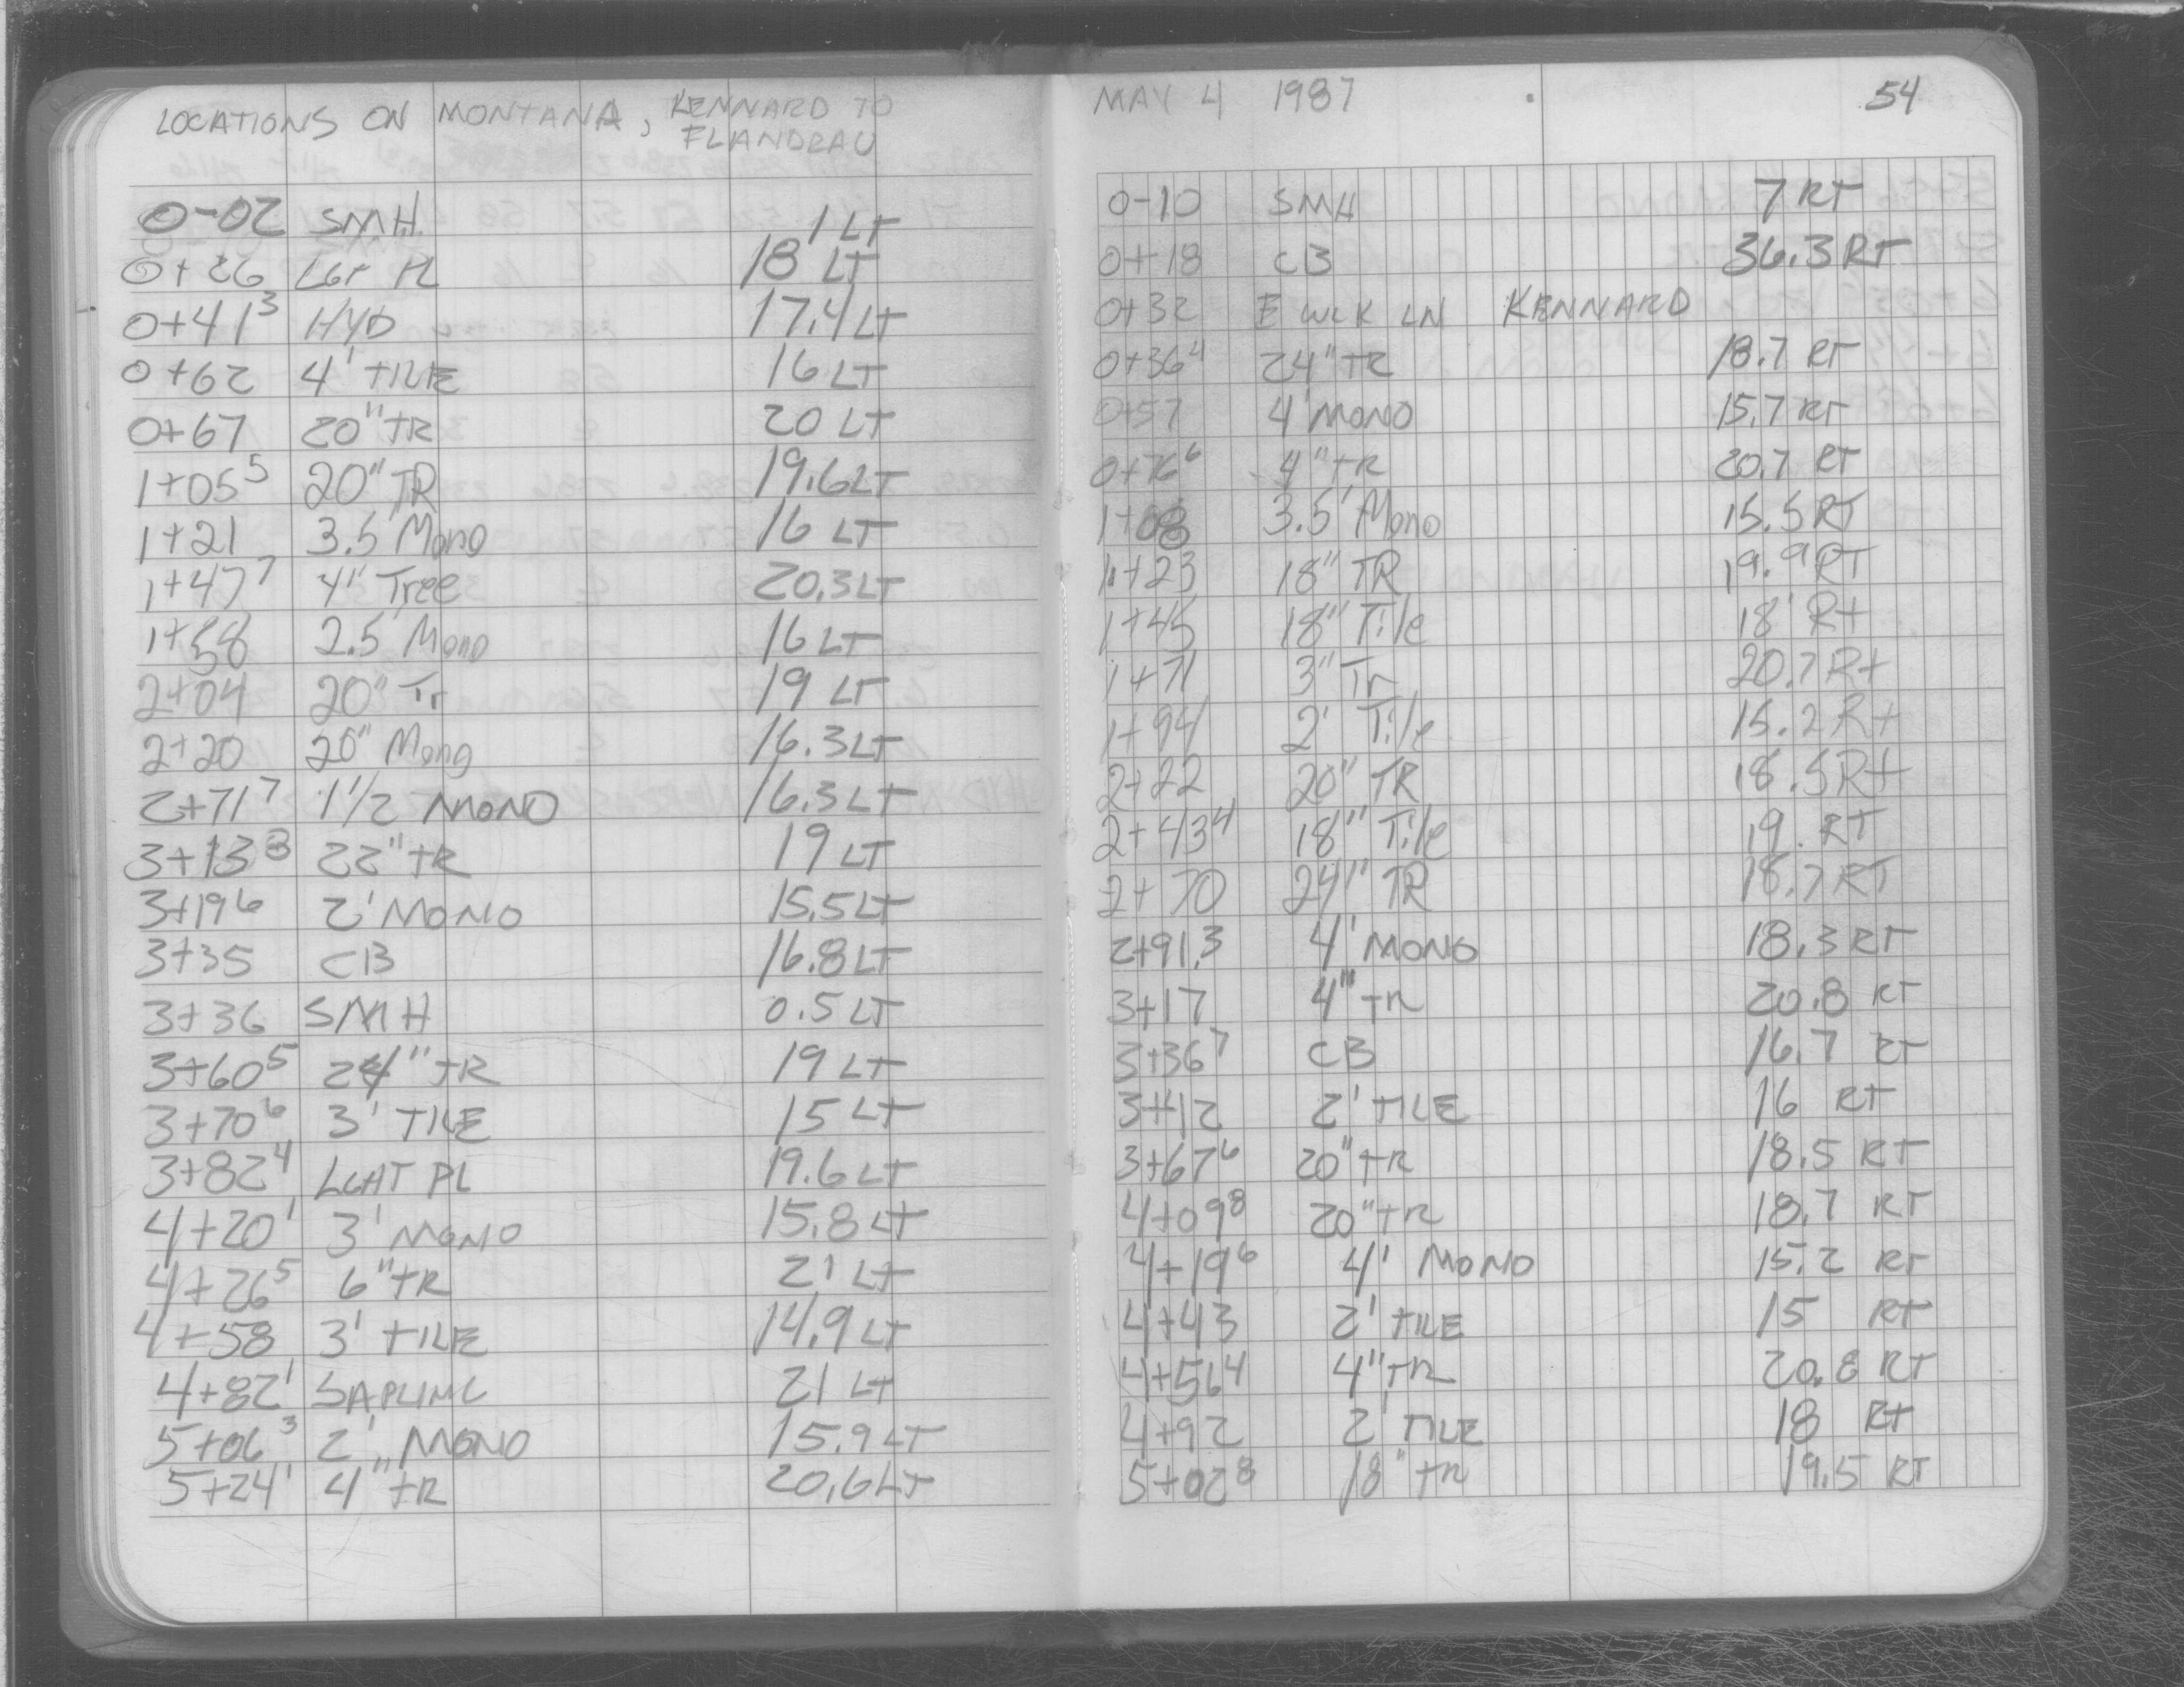 LOCATIONS ON MONTANA, KENNARD TO
FLANDRAU
0-02 SMH 1 LT
0+26 LGT PL 18 LT
0+41³ HYD 17.4 LT
0+62 4' TILE 16 LT
0+67 20" TR 20 LT
1+05⁵ 20" TR 19.6 LT
1+21 3.5' Mono 16 LT
1+47⁷ 4" Tree 20.3 LT
1+58 2.5' Mono 16 LT
2+04 20" Tr 19 LT
2+20 20" Mono 16.3 LT
2+71⁷ 1 1/2 MONO 16.3 LT
3+13⁸ 22" TR 19 LT
3+19⁶ 2' MONO 15.5 LT
3+35 CB 16.8 LT
3+36 SMH 0.5 LT
3+60⁵ 24" TR 19 LT
3+70⁶ 3' TILE 15 LT
3+82⁴ LGHT PL 19.6 LT
4+20¹ 3' MONO 15.8 LT
4+26⁵ 6" TR 21 LT
4+58 3' TILE 14.9 LT
4+82¹ SAPLING 21 LT
5+06³ 2' MONO 15.9 LT
5+24¹ 4" TR 20.6 LT
MAY 4 1987 54
0-10 SMH 7 RT
0+18 CB 36.3 RT
0+32 E WLK LN KENNARD
0+36⁴ 24" TR 18.7 RT
0+57 4' MONO 15.7 RT
0+76⁶ 4" TR 20.7 RT
1+08 3.5' Mono 15.5 RT
1+23 18" TR 19.9 RT
1+45 18" Tile 18' Rt
1+71 3" Tr 20.7 Rt
1+94 2' Tile 15.2 Rt
2+22 20" TR 18.5 Rt
2+43⁴ 18" Tile 19. RT
2+70 24" TR 18.7 RT
2+91.3 4' MONO 18.3 RT
3+17 4" TR 20.8 RT
3+36⁷ CB 16.7 RT
3+12 2' TILE 16 RT
3+67⁶ 20" TR 18.5 RT
4+09⁸ 20" TR 18.7 RT
4+19⁶ 4' MONO 15.2 RT
4+43 2' TILE 15 RT
4+56⁴ 4" TR 20.8 RT
4+92 2' TILE 18 RT
5+02⁸ 18" TR 19.5 RT